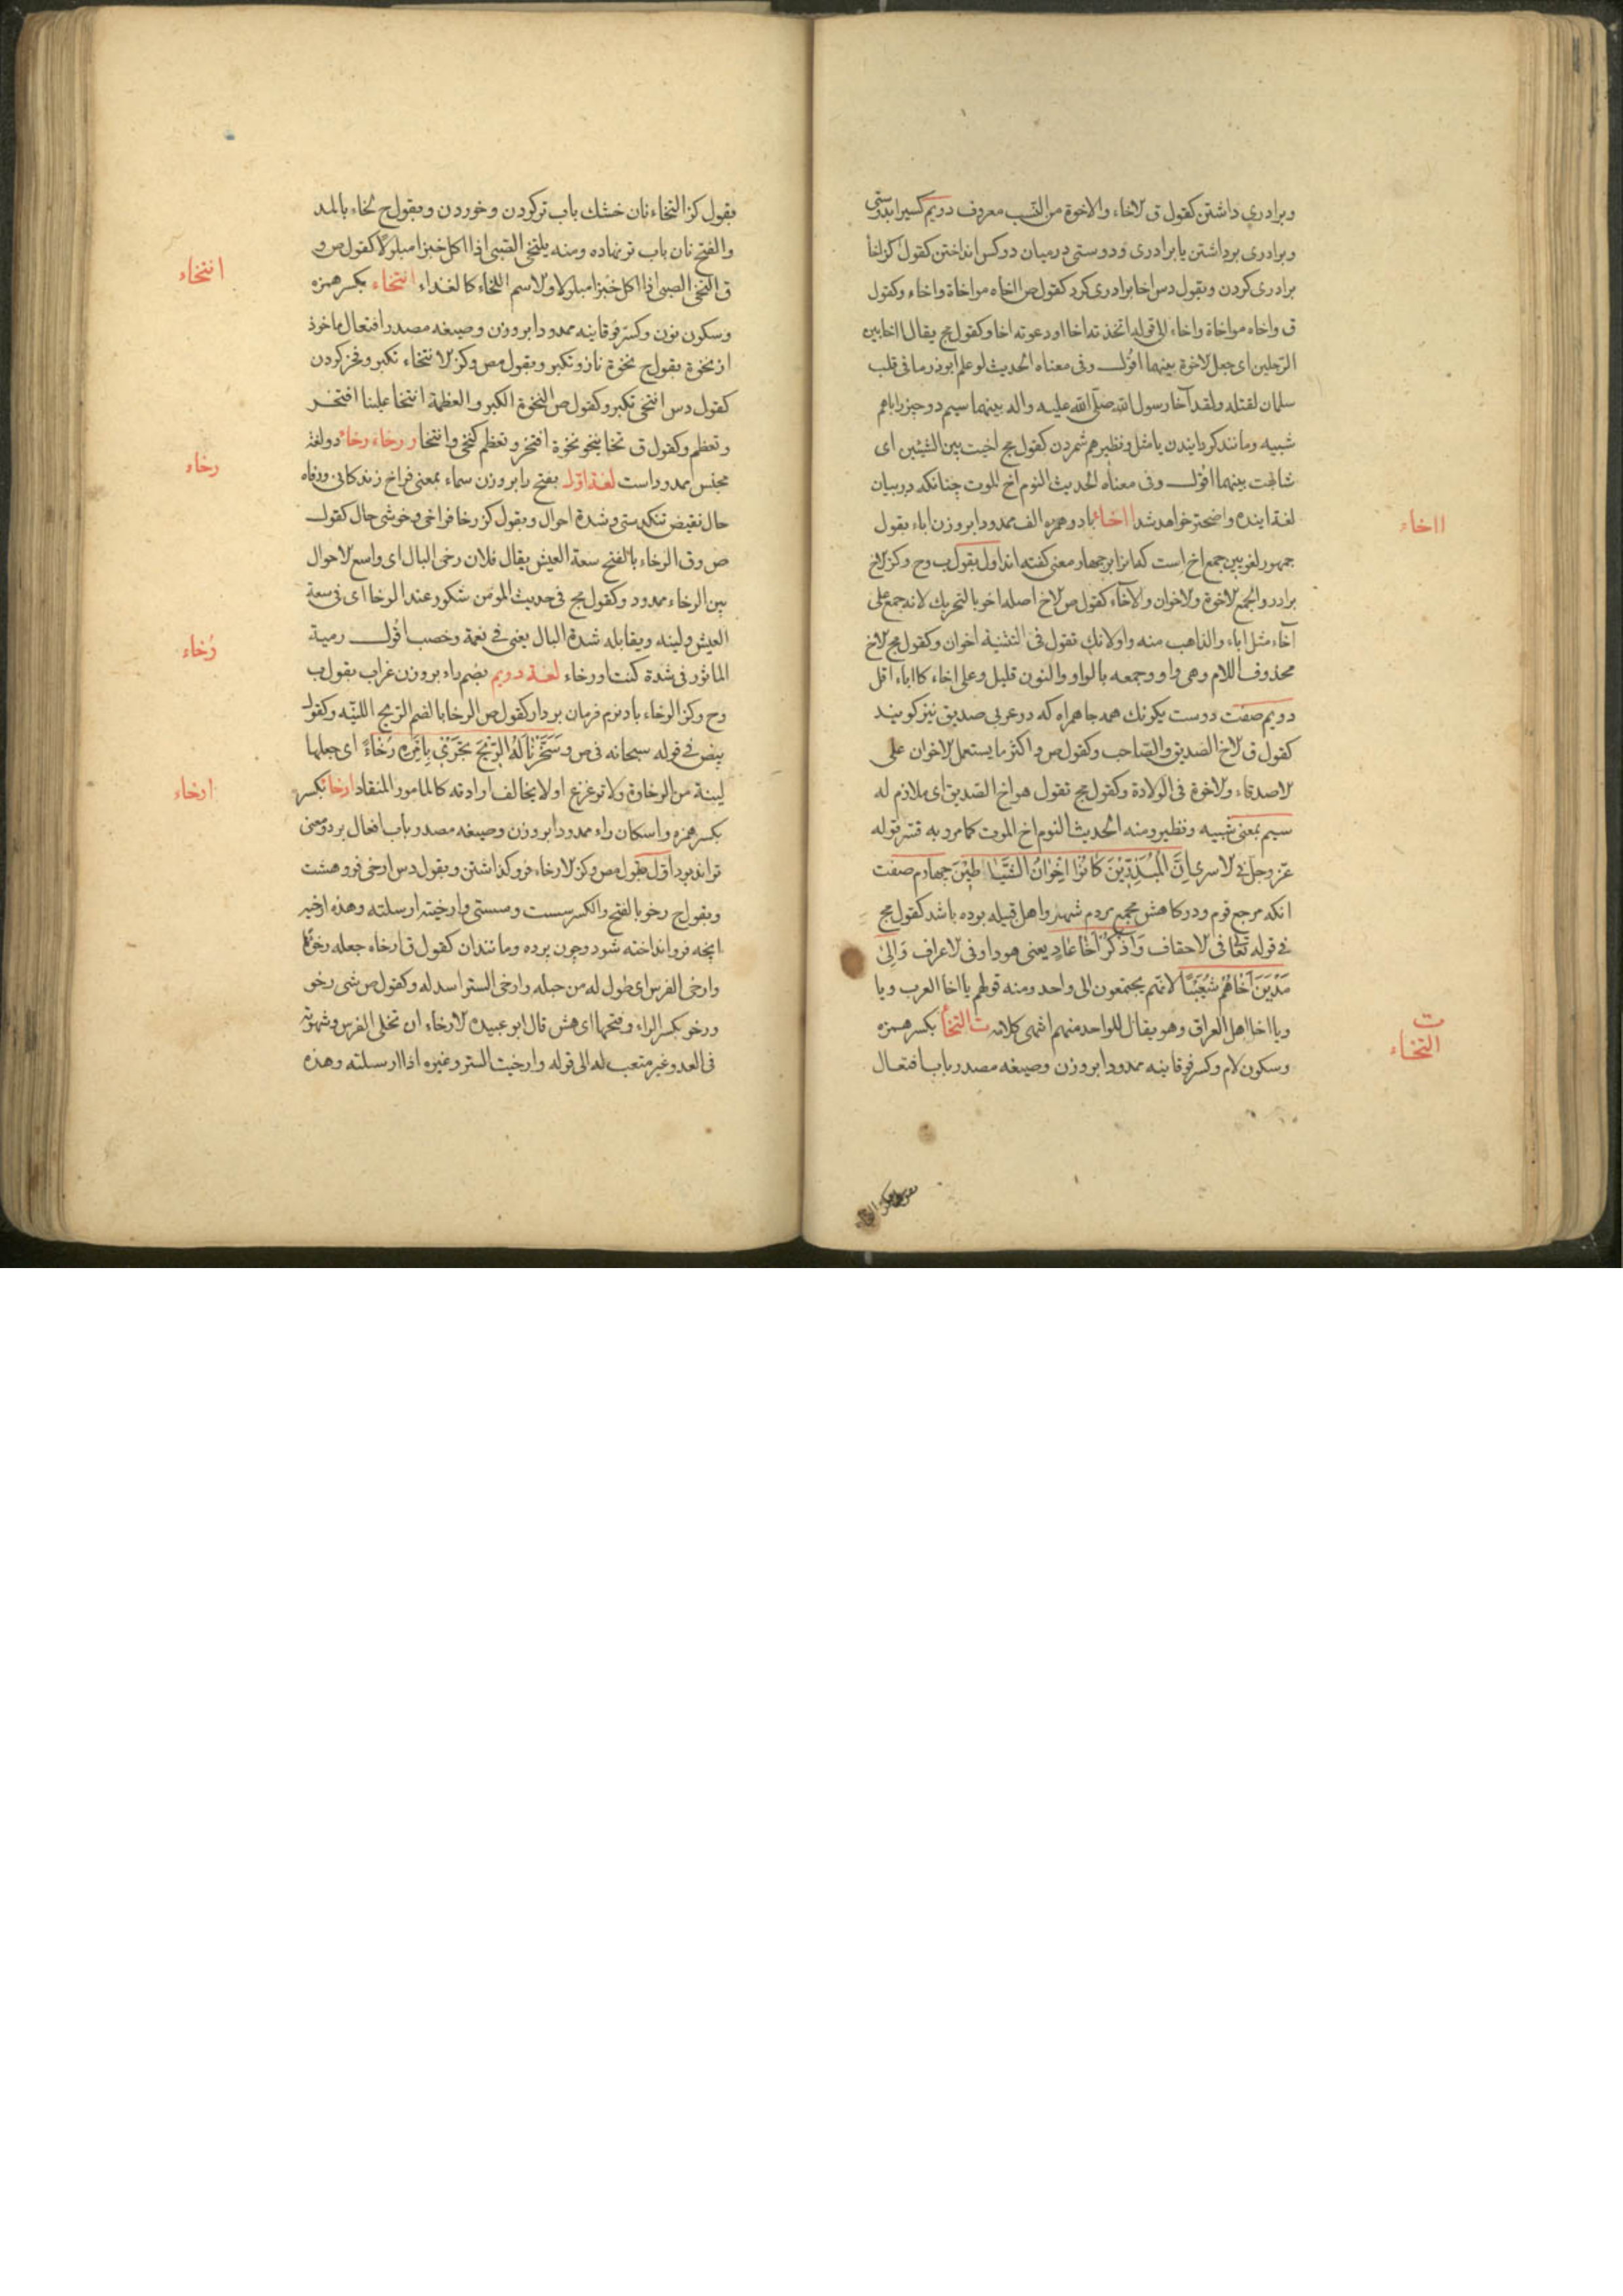 وبرادری داشتن کقول ق لاخاء والاخوة من النسب معروف دویم کسیرا بدوستی
وبرادری برداشتن یا برادری ودوستی درمیان دوکس انداختن کقول کز اخا
برادری کردن وبقول دس اخا برادری کرد کقول ص اخاه مواخاة واخاء وکقول
ق واخاه مواخاة واخاء الی قوله اتخذته اخا اودعوته اخا وکقول مج یقال اخا بین
الرجلین ای جعل لاخوة بینهما اقول وفی معناه الحدیث لو علم ابوذر ما فی قلب
سلمان لقتله ولقد آخا رسول الله صلی الله علیه واله بینهما سیم دو چیز را باهم
شبیه ومانند کردانیدن یا مثل ونظیر هم شمردن کقول مج اخیت بین الشیئین ای
شابهت بینهما اقول وفی معناه الحدیث النوم اخ الموت چنانکه در بیان
لغة اینده واضحتر خواهد شد ااخاء با دو همزه الف ممدودا بر وزن اباء بقول
جمهور لغویین جمع اخ است که انرا بر چهار معنی کفته اند اول بقول ب وح وکز لاخ
برادر والجمع لاخوة ولاخوان والآخاء کقول ص لاخ اصله اخو بالتحریک لانه جمع علی
آخاء مثل اباء والذاهب منه واو لانک تقول فی التثنیة اخوان وکقول مج لاخ
محذوف اللام وهی واو وجمعه بالواو والنون قلیل وعلی اخاء کااباء اقل
دویم صفت دوست یکرنک همه جا همراه که در عربی صدیق نیز کویند
کقول ق لاخ الصدیق والصاحب وکقول ص واکثر ما یستعمل لاخوان علی
لاصدقاء ولاخوة فی الولادة وکقول مج تقول هو اخ الصدیق ای ملازم له
سیم بمعنی شبیه ونظیر ومنه الحدیث النوم اخ الموت کما مر وبه فسر قوله
عز وجل فی لاسری اِنَّ الْمُبَذِّرِیْنَ کَانُوْا اِخْوَانَ الشَّیَاطِیْنَ چهارم صفت
انکه مرجع قوم ودرکاهش مجمع مردم شهر واهل قبیله بوده باشد کقول مج
فی قوله تعا فی لاحقاف وَاذْکُرْ اَخَا عَادٍ یعنی هودا وفی لاعراف وَاِلیٰ
مَدْیَنَ اَخَاهُمْ شُعَیْبًا لانهم یجتمعون الی واحد ومنه قولهم یا اخا العرب ویا
ویا اخا اهل العراق وهو یقال للواحد منهم انتهی کلامه ت التخاء بکسر همزه
وسکون لام وکسر فوقانیه ممدودا بر وزن وصیغه مصدر باب افتعال
ااخاء
ت
التخاء
بقول کز التخاء نان خشک باب تر کردن وخوردن وبقول ح لخاء بالمد
والفتح نان باب تر نهاده ومنه یلتخی الصبی اذا اکل خبزا مبلولا کقول ص و
ق التخی الصبی اذا اکل خبزا مبلولا ولاسم اللخاء کالغداء انتخاء بکسر همزه
وسکون نون وکسر فوقانیه ممدودا بر وزن وصیغه مصدر افتعال ماخوذ
از نخوة بقول ح نخوة ناز وتکبر وبقول مص وکز لانتخاء تکبر وفخر کردن
کقول دس انتخی تکبر وکقول ص النخوة الکبر والعظمة انتخا علینا افتخر
وتعظم وکقول ق نخا ینخو نخوة افتخر وتعظم کنخی وانتخا ر رخاء رخاء دو لغة
مجنس ممدود است لغة اول بفتح را بر وزن سماء بمعنی فراخ زندکانی ورفاه
حال نقیض تنکدستی وشدة احوال وبقول کز رخا فراخی وخوشی حال کقول
ص وق الرخاء بالفتح سعة العیش یقال فلان رخی البال ای واسع لاحوال
بین الرخاء ممدود وکقول مج فی حدیث المؤمن شکور عند الرخا ای فی سعة
العیش ولینه ویقابله شدة البال یعنی فی نعمة وخصب اقول ومنه
الماثور فی شدة کنت او رخاء لغة دویم بضم راء بر وزن غراب بقول ب
وح وکز الرخاء باد نرم فرمان بردار کقول ص الرخا بالضم الریح اللینه وکقول
بیض فی قوله سبحانه فی ص وَسَخَّرْنَا لَهُ الرِّیْحَ تَجْرِیْ بِاَمْرِهِ رُخَاءً ای جعلها
لینة من الرخاوة ولا تزعزع او لا یخالف ارادته کالمامور المنقاد ارخاء بکسر
بکسر همزه واسکان راء ممدودا بر وزن وصیغه مصدر باب افعال بر دو معنی
تواند بود اول بقول مص وکز لارخاء فروکذاشتن وبقول دس ارخی فرو هشت
وبقول ح رخو بالفتح والکسر سست وسستی وارخیته ارسلته وهذه ارخیه
انچه فرو انداخته شود چون پرده ومانند ان کقول ق ارخاه جعله رخوا
وارخی الفرس ای طول له من حبله وارخی الستر اسدله وکقول ص شی رخو
ورخو بکسر الراء وفتحها ای هش قال ابو عبیده لارخاء ان تخلی الفرس وشهوته
فی العدو غیر متعب له الی قوله وارخیت الستر وغیره اذا ارسلته وهذه
انتخاء
رخاء
رُخاء
ارخاء